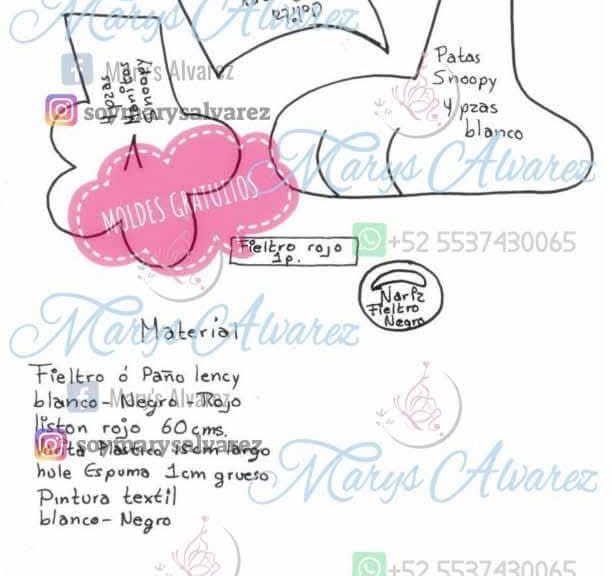 Marys Alvarez
Mary's Alvarez
soymarysalvarez
Snoopy
Patas
Snoopy
4 pzas
blanco
Marys Alvarez
MOLDES GRATUITOS
Fieltro rojo
1p.
+52 5537430065
Nariz
Fieltro
Negro
Marys Alvarez
Material
Fieltro ó Paño lency
blanco - Negro - Rojo
Mary's Alvarez
liston rojo 60 cms.
soymarysalvarez
Plastica 15cm largo
hule Espuma 1cm grueso
Pintura textil
blanco - Negro
Marys Alvarez
+52 5537430065